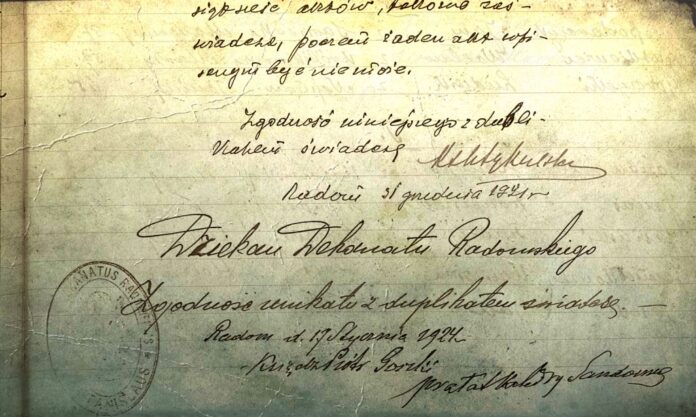 sięrność aktów, takowe zaś-
wiadczę, poczem żaden akt wpi-
sanym być nie może.
Zgodność niniejszego z dubli-
katem świadczę
Radom 31 grudnia 1921 r
Dziekan Dekanatu Radomskiego
Zgodność unikatu z duplikatem świadczę. —
Radom d. 17 Stycznia 1924.
Ksiądz Piotr Gorski
prałat Katedry Sandom